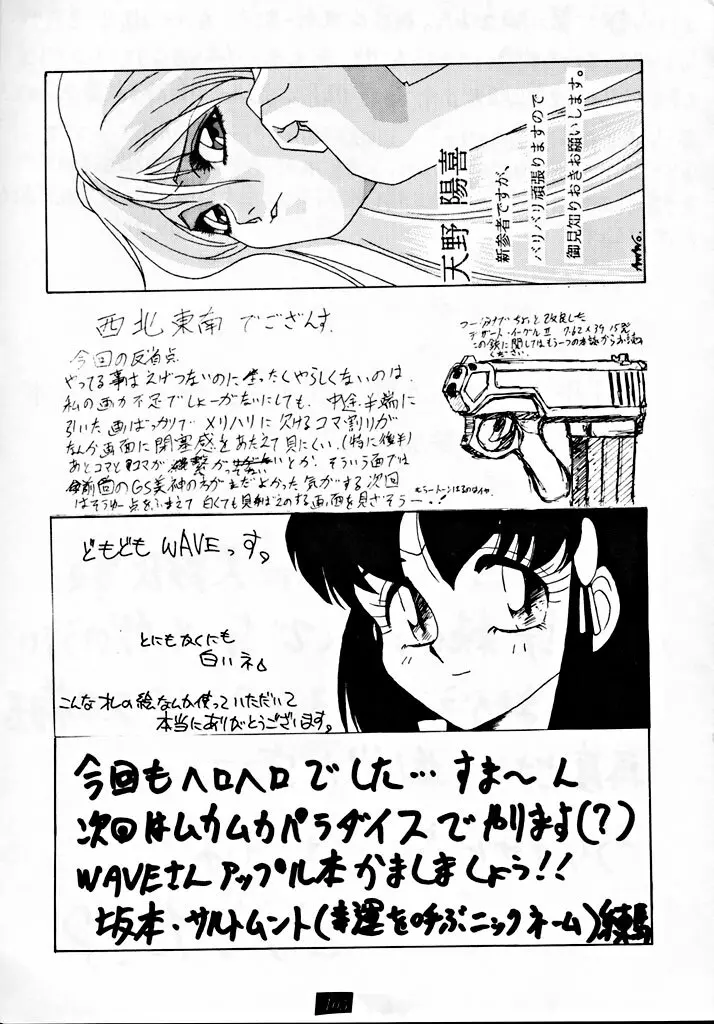 天野 陽喜
新参者ですが、
バリバリ頑張りますので
御見知りおきお願いします。
西北東南でござんす
今回の反省点
やってる事はえげつないのに全ったくやらしくないのは、
私の画力不足でしょーがないにしても、中途半端に
引いた画ばっかりでメリハリに欠けるコマ割りが
なんか画面に閉塞感をあたえて見にくい。(特に後半)
あとコマとコマが とか、そういう面では
前回のGS美神の方がまだよかった気がする次回
はそうゆー点をふまえて白くても見ればえのする画面を見ざそうー・・!
ちょっと改良した
デザート・イーグルⅡ 7.62×39 15発
この銃に関してはもう一つの本誌から
ください
どもども WAVEっす。
とにもかくにも
白いネ
こんな私の絵なんか使っていただいて
本当にありがとうございます。
今回もヘロヘロでした…すま〜ん
次回はムカムカパラダイスでやります(?)
WAVEさんアップル本かましましょう!!
坂本・サルトムント(幸運を呼ぶニックネーム)練馬